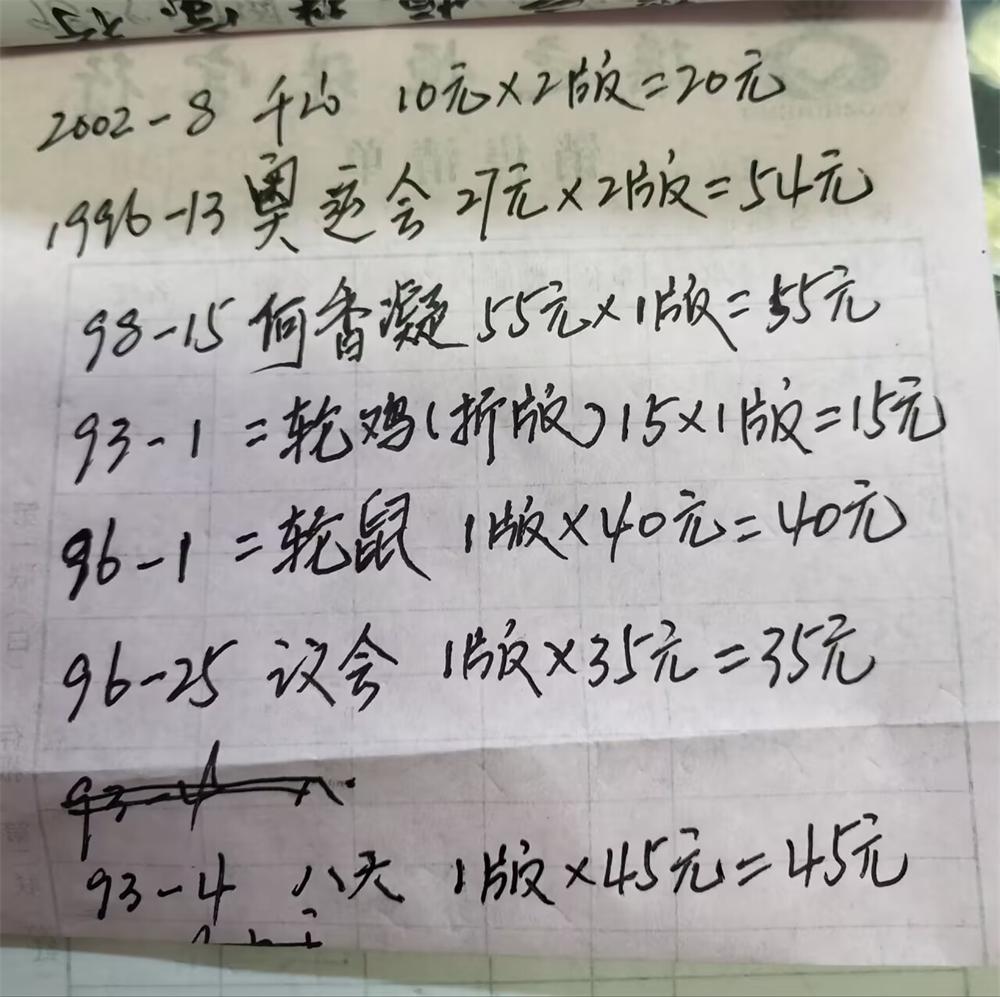 2002-8 千山 10元×2版=20元
1996-13 奥运会 27元×2版=54元
98-15 何香凝 55元×1版=55元
93-1 =轮鸡(折版) 15×1版=15元
96-1 =轮鼠 1版×40元=40元
96-25 议会 1版×35元=35元
93-4 八
93-4 八天 1版×45元=45元